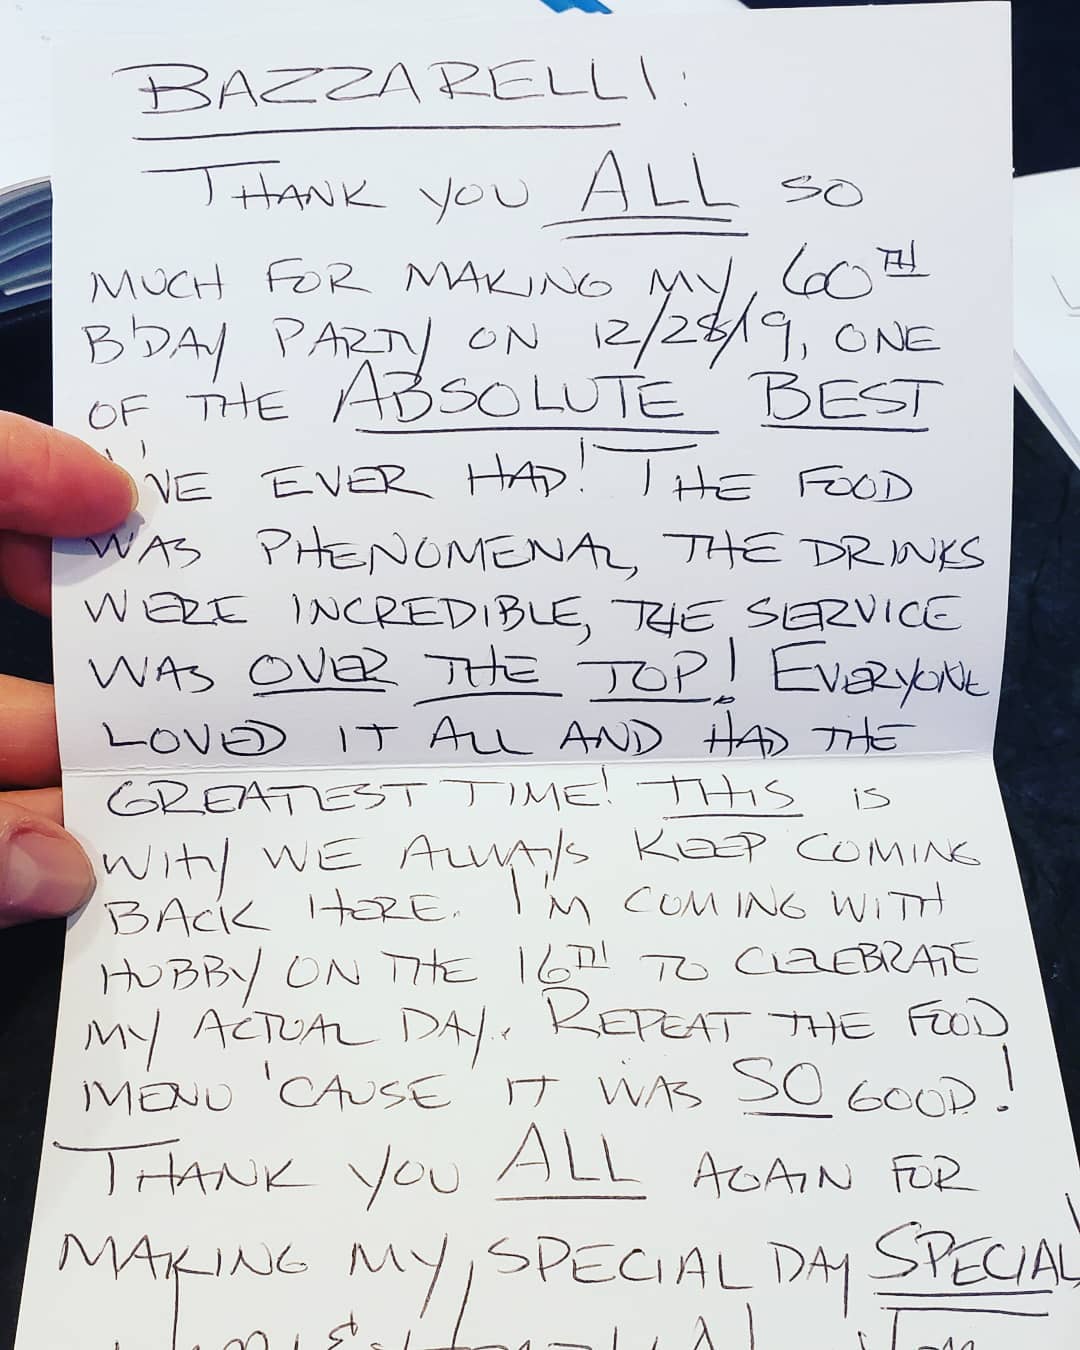 BAZZARELLI:
THANK YOU ALL SO
MUCH FOR MAKING MY 60TH
B'DAY PARTY ON 12/28/19, ONE
OF THE ABSOLUTE BEST
I'VE EVER HAD! THE FOOD
WAS PHENOMENAL, THE DRINKS
WERE INCREDIBLE, THE SERVICE
WAS OVER THE TOP! EVERYONE
LOVED IT ALL AND HAD THE
GREATEST TIME! THIS IS
WHY WE ALWAYS KEEP COMING
BACK HERE. I'M COMING WITH
HUBBY ON THE 16TH TO CELEBRATE
MY ACTUAL DAY. REPEAT THE FOOD
MENU 'CAUSE IT WAS SO GOOD!
THANK YOU ALL AGAIN FOR
MAKING MY SPECIAL DAY SPECIAL!